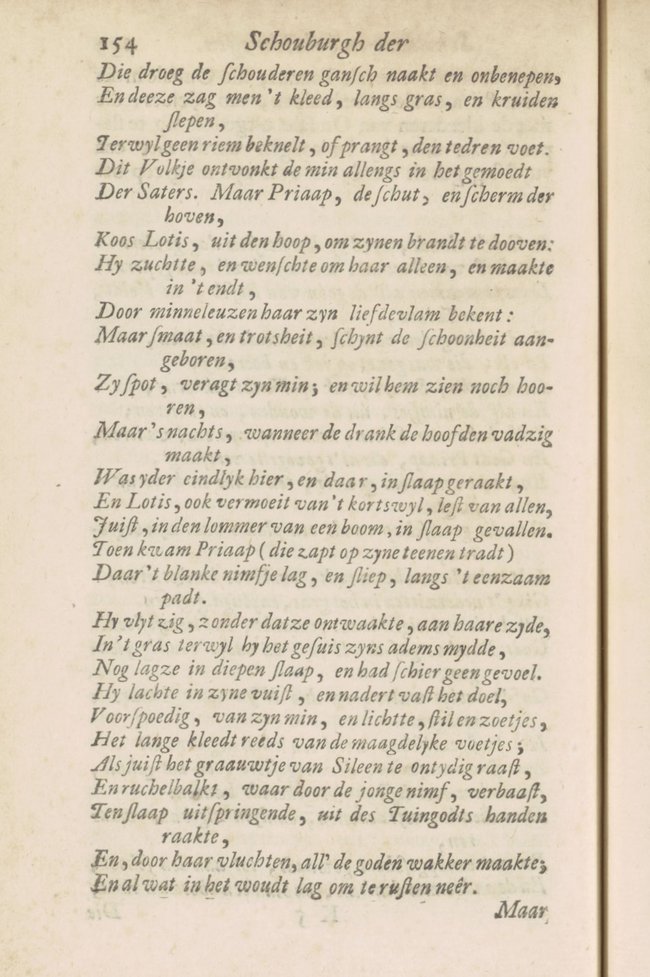 154 Schouburgh der
Die droeg de ſchouderen ganſch naakt en onbenepen,
En deeze zag men 't kleed, langs gras, en kruiden
ſlepen,
Terwyl geen riem beknelt, of prangt, den tedren voet.
Dit Volkje ontvonkt de min allengs in het gemoedt
Der Saters. Maar Priaap, de ſchut, en ſcherm der
hoven,
Koos Lotis, uit den hoop, om zynen brandt te dooven:
Hy zuchtte, en wenſchte om haar alleen, en maakte
in 't endt,
Door minneleuzen haar zyn liefdevlam bekent:
Maar ſmaat, en trotsheit, ſchynt de ſchoonheit aan-
geboren,
Zy ſpot, veragt zyn min; en wil hem zien noch hoo-
ren,
Maar 's nachts, wanneer de drank de hoofden vadzig
maakt,
Was yder eindlyk hier, en daar, in ſlaap geraakt,
En Lotis, ook vermoeit van 't kortswyl, leſt van allen,
Juiſt, in den lommer van een boom, in ſlaap gevallen.
Toen kwam Priaap (die zapt op zyne teenen tradt)
Daar 't blanke nimfje lag, en ſliep, langs 't eenzaam
padt.
Hy vlyt zig, zonder datze ontwaakte, aan haare zyde,
In 't gras terwyl hy het geſuis zyns adems mydde,
Nog lagze in diepen ſlaap, en had ſchier geen gevoel.
Hy lachte in zyne vuiſt, en nadert vaſt het doel,
Voorſpoedig, van zyn min, en lichtte, ſtil en zoetjes,
Het lange kleedt reeds van de maagdelyke voetjes;
Als juiſt het graauwtje van Sileen te ontydig raaſt,
En ruchelbalkt, waar door de jonge nimf, verbaaſt,
Ten ſlaap uitſpringende, uit des Tuingodts handen
raakte,
En, door haar vluchten, all' de goden wakker maakte;
En al wat in het woudt lag om te ruſten neêr.
Maar